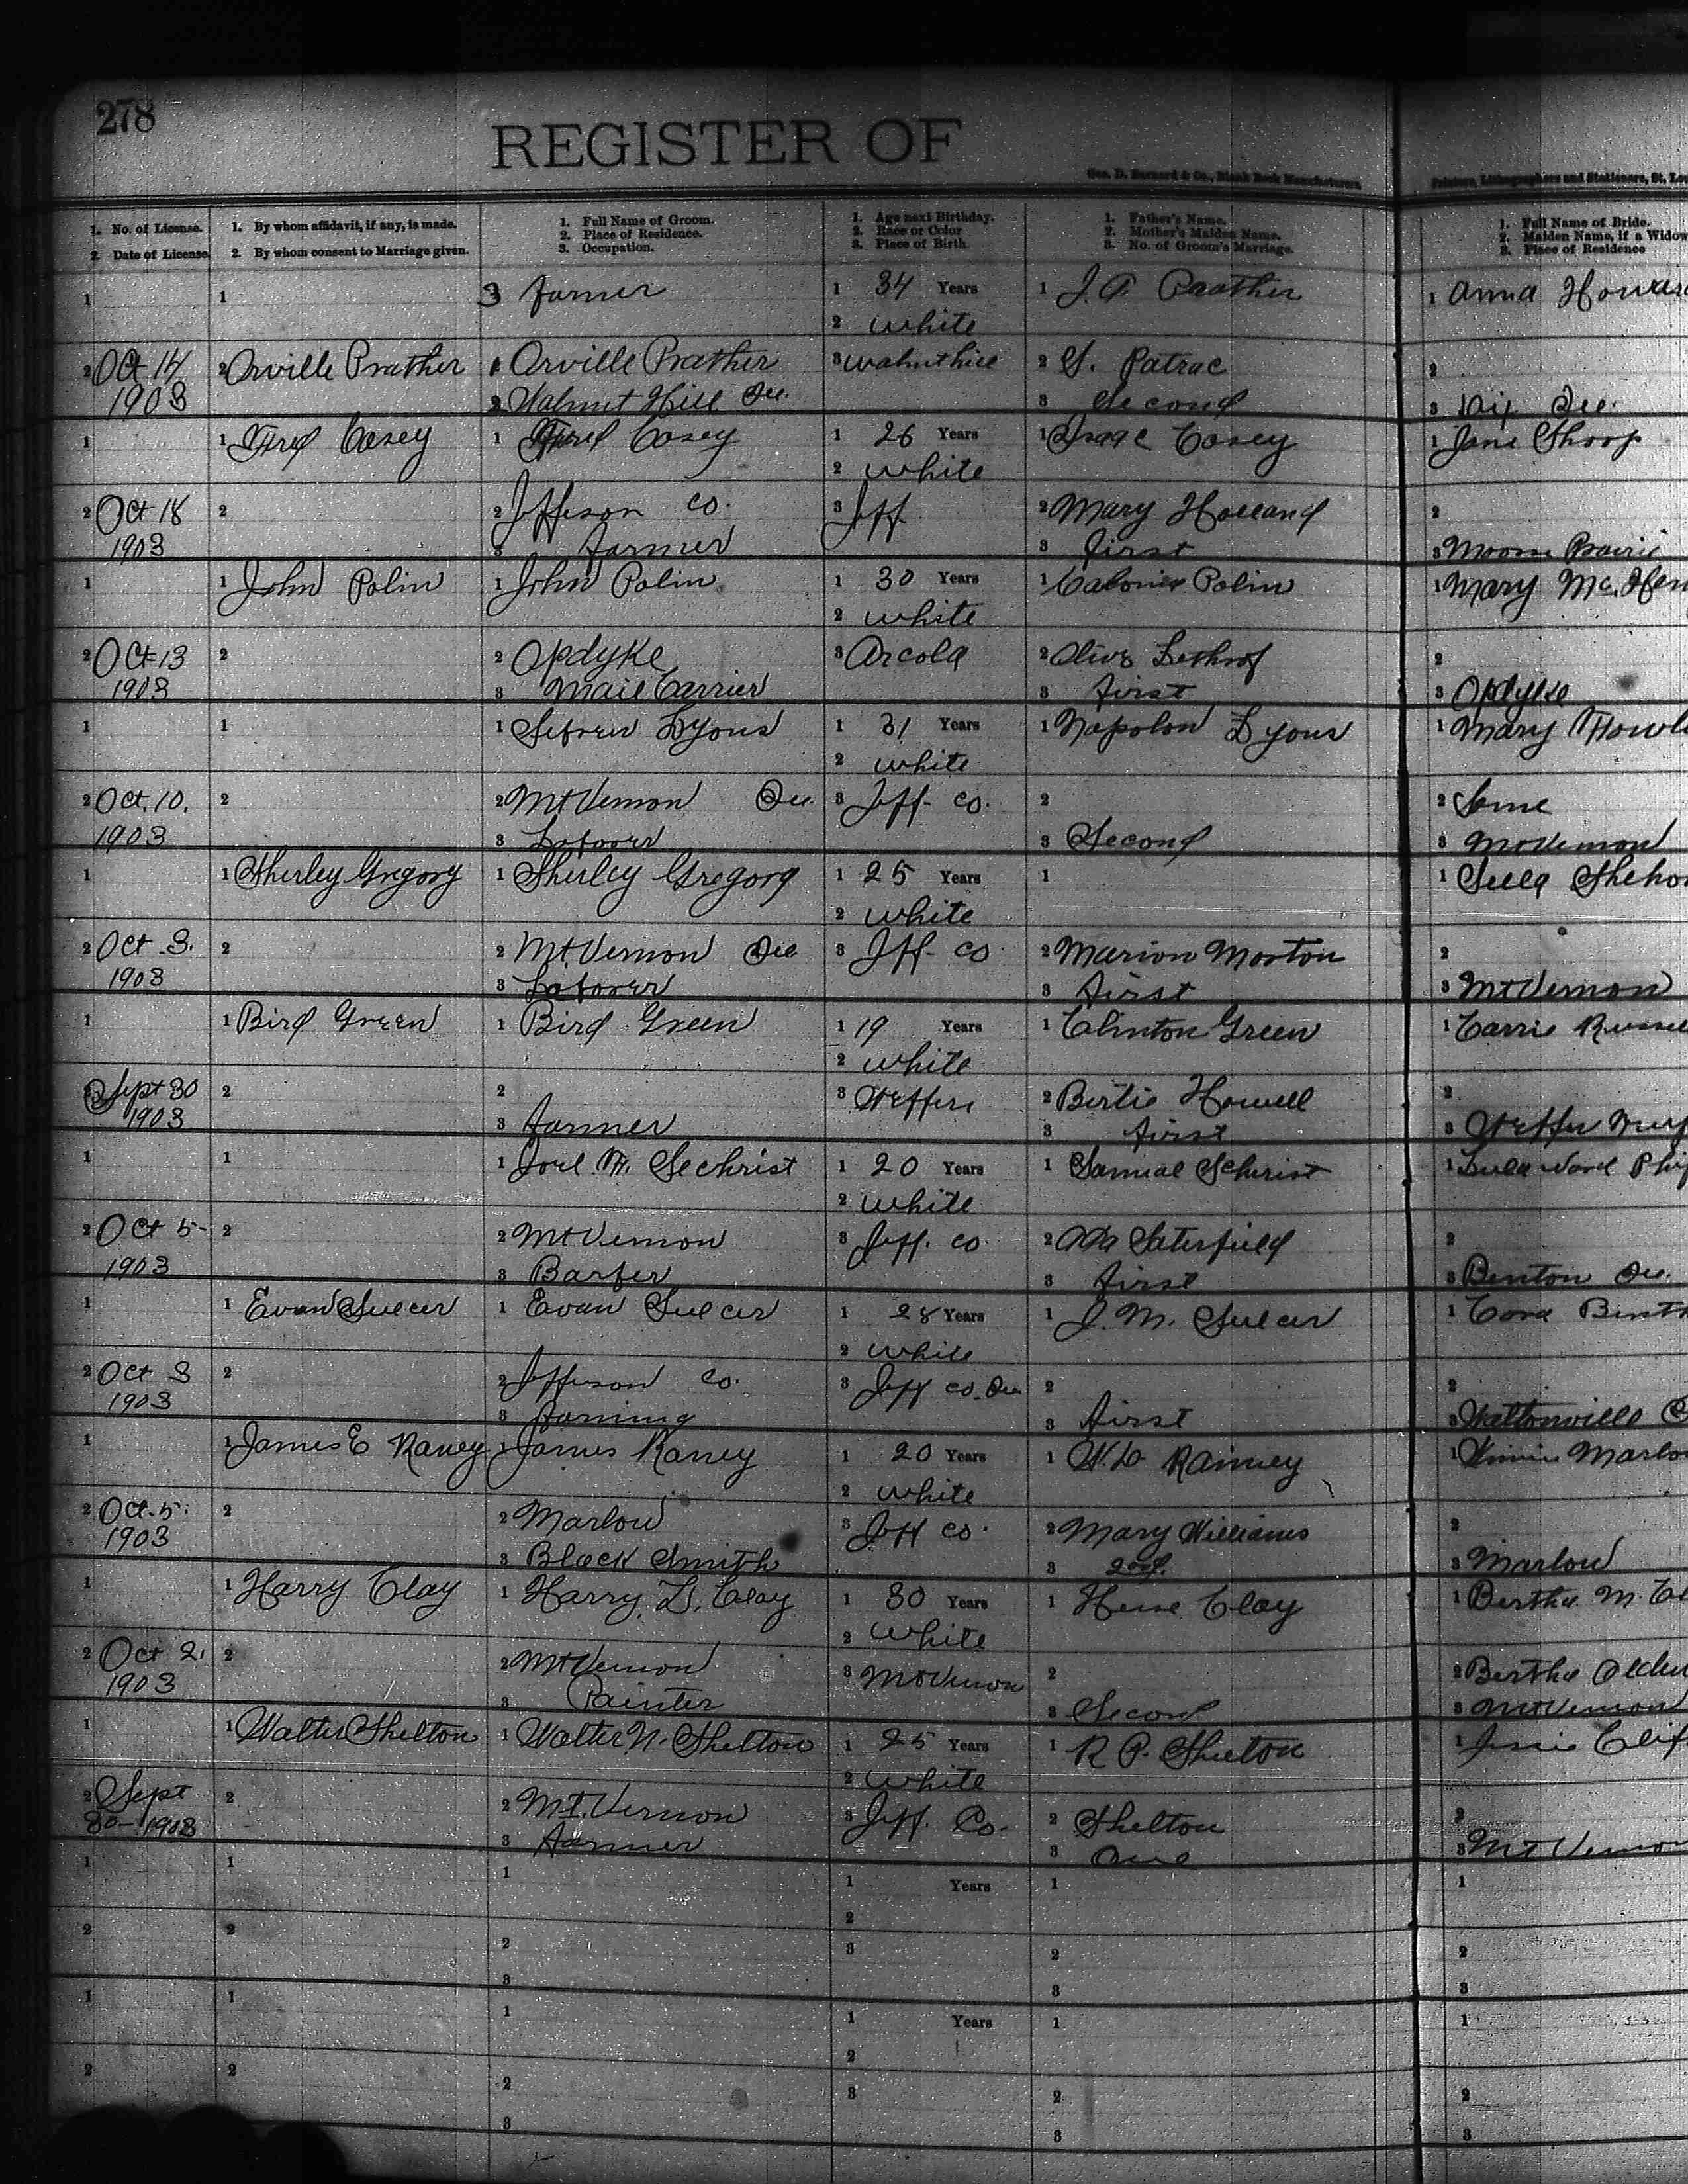 278
REGISTER OF
Geo. D. Barnard & Co., Blank Book Manufacturers,
Printers, Lithographers and Stationers, St. Lou
1. No. of License.
2. Date of License.
1. By whom affidavit, if any, is made.
2. By whom consent to Marriage given.
1. Full Name of Groom.
2. Place of Residence.
3. Occupation.
1. Age next Birthday.
2. Race or Color
3. Place of Birth.
1. Father's Name.
2. Mother's Maiden Name.
3. No. of Groom's Marriage.
1. Full Name of Bride.
2. Maiden Name, if a Widow
3. Place of Residence
1
1
3 farmer
1 34 Years
1 J. A. Prather
1 Anna Howar
2 white
2 Oct 14
2 Orville Prather
1 Orville Prather
3 walnut hill
2 S. Patrac
2
1903
2 Walnut Hill Ill.
3 Second
3 Dix Ill.
1
1 Fred Casey
1 Fred Casey
1 26 Years
1 Isaac Casey
1 Jane Shoop
2 white
2 Oct 18
2
2 Jefferson co.
3 Jeff
2 Mary Holland
2
1903
3 farmer
3 first
3 Moores Prairie
1
1 John Polin
1 John Polin
1 30 Years
1 Polin
1 Mary Mc.Hen
2 white
2 Oct 13
2
2 Opdyke
3 Arcola
2 Olive
2
1903
3 Mail Carrier
3 first
3 Opdyke
1
1
1 Lyons
1 31 Years
1 Napolon Lyons
1 Mary Fowl
2 white
2 Oct. 10.
2
2 Mt Vernon Ill.
3 Jeff- co.
2
2 Same
1903
3 Laborer
3 Second
3 Mt Vernon
1
1 Shirley Gregory
1 Shirley Gregory
1 25 Years
1
1 Lula Sheho
2 white
2 Oct 3.
2
2 Mt. Vernon Ill
3 Jeff- co
2 Marion Morton
2
1903
3 Laborer
3 first
3 Mt Vernon
1
1 Bird Green
1 Bird Green
1 19 Years
1 Clinton Green
1 Carrie Russe
2 white
2 Sept 30
2
2
3
2 Bertie Howell
2
1903
3 farmer
3 first
3
1
1
1 Joel H. Sechrist
1 20 Years
1 Samual Schirist
1 Lula Ward Phi
2 white
2 Oct 5-
2
2 Mt Vernon
3 Jeff. co
2 Saterfield
2
1903
3 Barber
3 first
3 Benton Ill.
1
1 Evan Sulcer
1 Evan Sulcer
1 28 Years
1 J. M. Sulcer
1 Cora
2 white
2 Oct 3
2
2 Jefferson Co.
3 Jeff co. Ill
2
2
1903
3 farming
3 first
3 Waltonville
1
1 James E Raney
1 James Raney
1 20 Years
1 Rainey
1 Marlo
2 white
2 Oct. 5.
2
2 Marlow
3 Jeff co.
2 Mary Williams
2
1903
3 Black Smith
3 2nd.
3 Marlow
1
1 Harry Clay
1 Harry L. Clay
1 30 Years
1 Clay
1 Bertha M. Cl
2 White
2 Oct 2,
2
2 Mt Vernon
3 Mt Vernon
2
2 Bertha
1903
3 Painter
3 Second
3 Mt Vernon
1
1 Walter Shelton
1 Walter N. Shelton
1 25 Years
1 R P. Shelton
1 Jessie Clif
2 White
2 Sept
2
2 Mt. Vernon
3 Jeff. Co.
2 Shelton
2
30-1903
3 Farmer
3 One
3 Mt Vernon
1
1
1
1 Years
1
1
2
2
2
2
3
2
2
3
3
3
1
1
1
1 Years
1
1
2
2
2
2
3
2
2
3
3
3